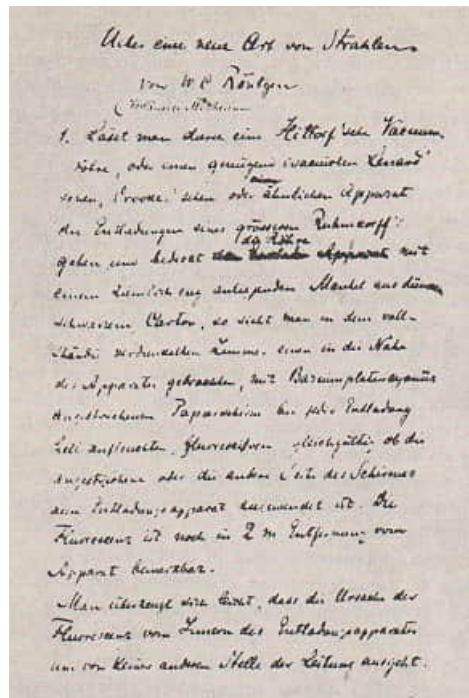 Ueber eine neue Art von Strahlen
von W C Röntgen
1. Lässt man durch eine Hittorf'sche Vacuum-
röhre, oder einen genügend evacuirten Lenard'
schen, Crookes'schen oder ähnlichen Apparat
die Entladungen eines grösseren Ruhmkorff's
gehen und bedeckt die Röhre Apparat mit
einem ziemlich eng anliegenden Mantel aus dünnem
schwarzem Carton, so sieht man in dem voll-
ständig verdunkelten Zimmer einen in die Nähe
des Apparates gebrachten, mit Bariumplatincyanür
angestrichenen Papierschirm bei jeder Entladung
hell aufleuchten, fluoresciren, gleichgültig ob die
angestrichene oder die andere Seite des Schirmes
dem Entladungsapparat zugewendet ist. Die
Fluorescenz ist noch in 2 m Entfernung vom
Apparat bemerkbar.
Man überzeugt sich leicht, dass die Ursache der
Fluorescenz vom Innern des Entladungsapparates
und von keiner anderen Stelle der Leitung ausgeht.